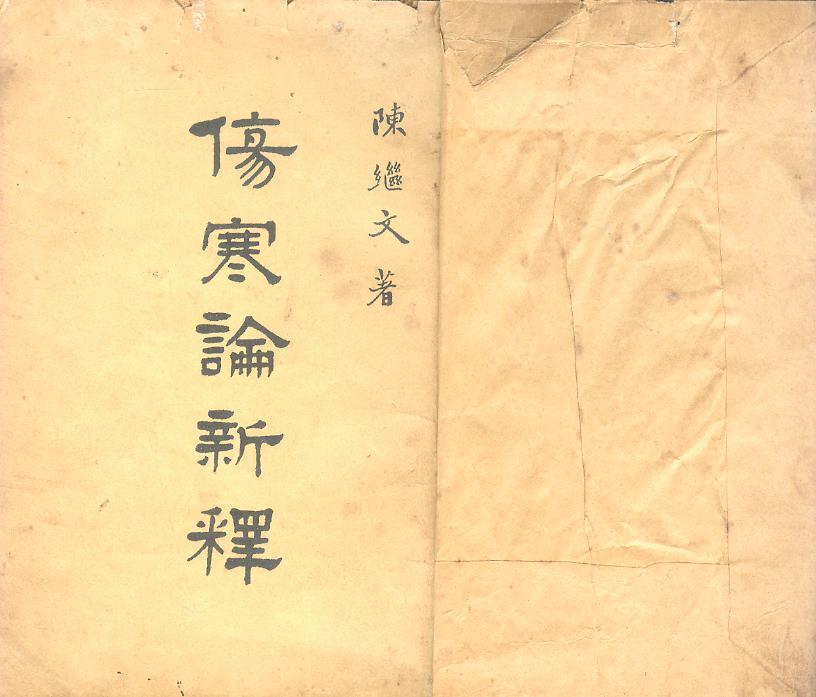 陳繼文著
傷寒論新釋